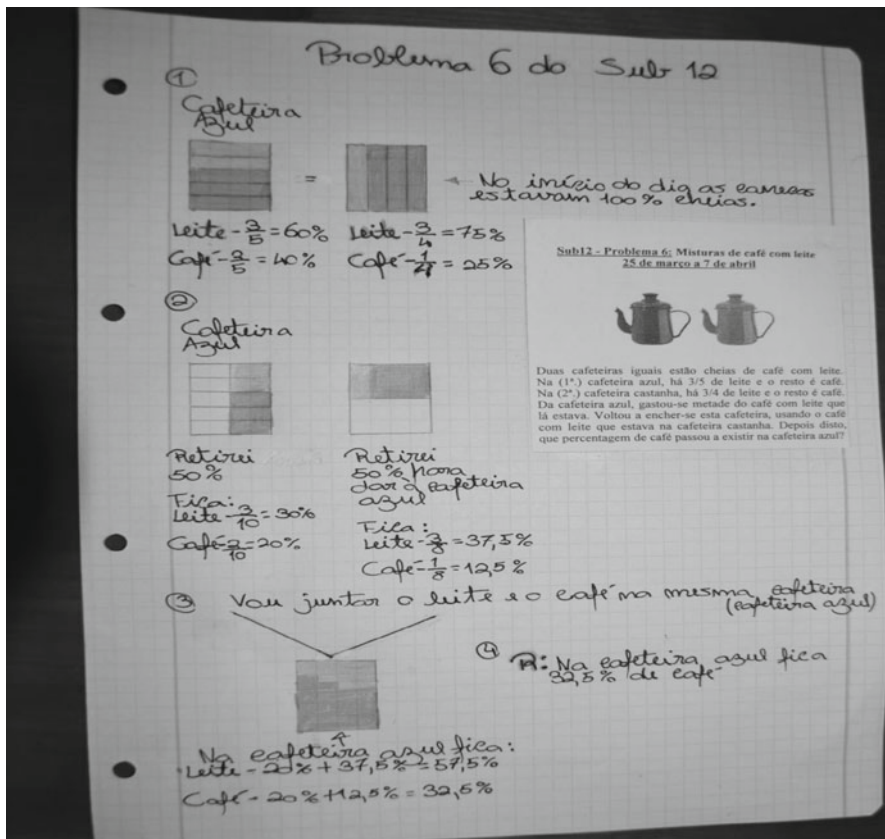 Problema 6 do Sub 12
①
Cafeteira
Azul
=
No início do dia as canecas
estavam 100% cheias.
Leite - 3/5 = 60%
Café - 2/5 = 40%
Leite - 3/4 = 75%
Café - 1/4 = 25%
Sub12 - Problema 6: Misturas de café com leite
25 de março a 7 de abril
Duas cafeteiras iguais estão cheias de café com leite.
Na (1ª.) cafeteira azul, há 3/5 de leite e o resto é café.
Na (2ª.) cafeteira castanha, há 3/4 de leite e o resto é café.
Da cafeteira azul, gastou-se metade do café com leite que
lá estava. Voltou a encher-se esta cafeteira, usando o café
com leite que estava na cafeteira castanha. Depois disto,
que percentagem de café passou a existir na cafeteira azul?
②
Cafeteira
Azul
Retirei
50%
Fica:
Leite - 3/10 = 30%
Café - 2/10 = 20%
Retirei
50% para
dar à cafeteira
azul
Fica:
Leite - 3/8 = 37,5%
Café - 1/8 = 12,5%
③ Vou juntar o leite e o café na mesma cafeteira
(cafeteira azul)
④ R: Na cafeteira azul fica
32,5% de café
Na cafeteira azul fica:
Leite - 20% + 37,5% = 57,5%
Café - 20% + 12,5% = 32,5%